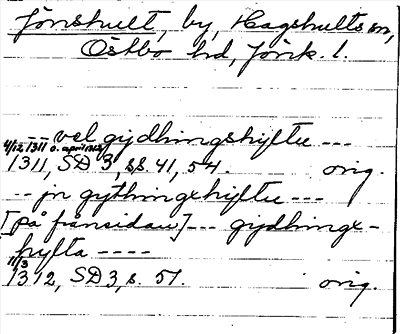 Jönshult, by, Hagshults sn,
Östbo hd, Jönk. l.
-- vel gydhingshyftee ---
4/12 1311 o. april 1312
1311, SD 3, ss. 41, 54. orig.
-- jn gythingxhyftee ---
[på frånsidan] --- gydhingx-
hyfta ----
11/3
1312, SD 3, s. 51. orig.